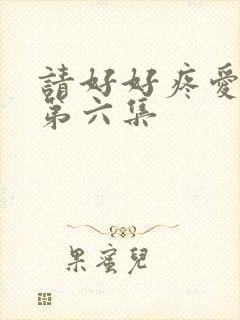 請好好疼愛
第六集
果蜜兒